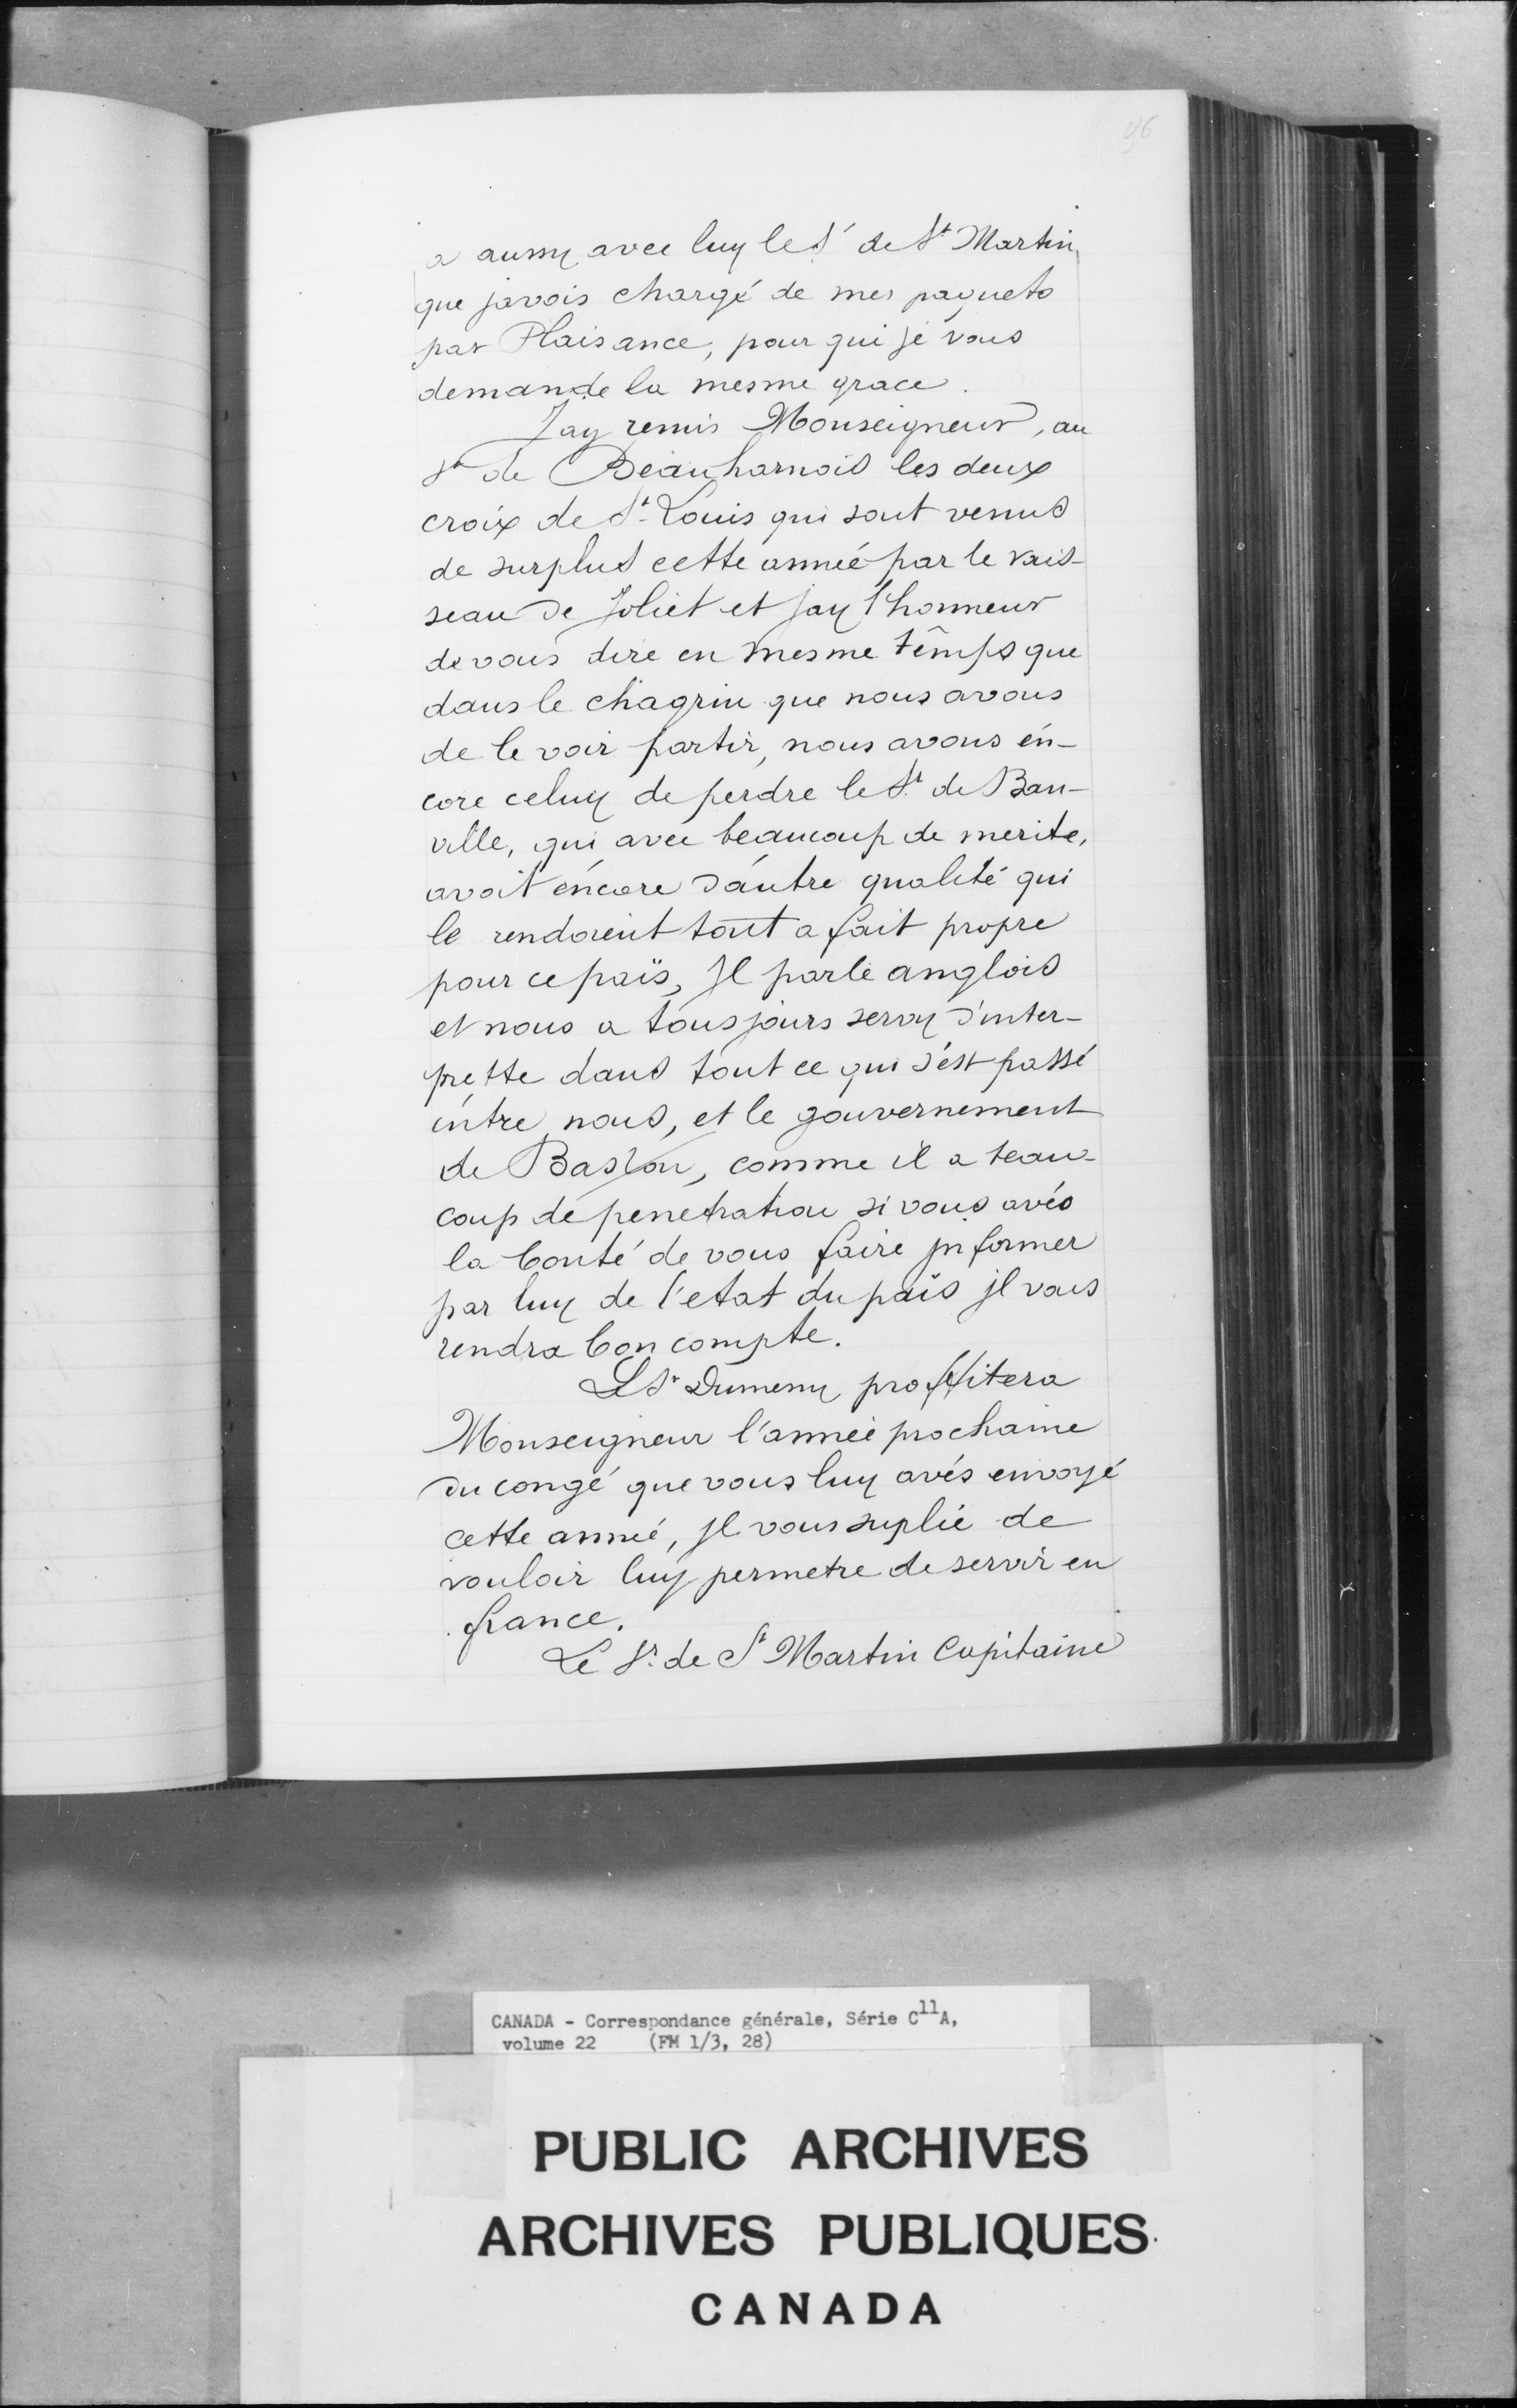 96
a aussy avec luy le Sr de St Martin,
que javois chargé de mes paquets
par Plaisance, pour qui je vous
demande la mesme grace.
Jay remis Monseigneur, au
Sr de Beauharnois les deux
croix de St Louis qui sont venus
de surplus cette année par le vais-
seau de Joliet et jay l'honneur
de vous dire en mesme temps que
dans le chagrin que nous avons
de le voir partir, nous avons en-
core celuy de perdre le Sr de Ban-
ville, qui avec beaucoup de merite,
avoit encore d'autre qualité qui
le rendoient tout a fait propre
pour ce païs, Jl parle anglois
et nous a tousjours servy d'inter-
prette dans tout ce qui s'est passé
entre nous, et le gouvernement
de Baston, comme il a beau-
coup de penetration si vous avés
la bonté de vous faire jnformer
par luy de l'etat du païs jl vous
rendra bon compte.
Le Sr Dumeny proffitera
Monseigneur l'année prochaine
du congé que vous luy avés envoyé
cette année, Jl vous suplie de
vouloir luy permetre de servir en
france.
Le Sr. de St Martin Capitaine
CANADA - Correspondance générale, Série C11A,
volume 22 (FM 1/3, 28)
PUBLIC ARCHIVES
ARCHIVES PUBLIQUES
CANADA